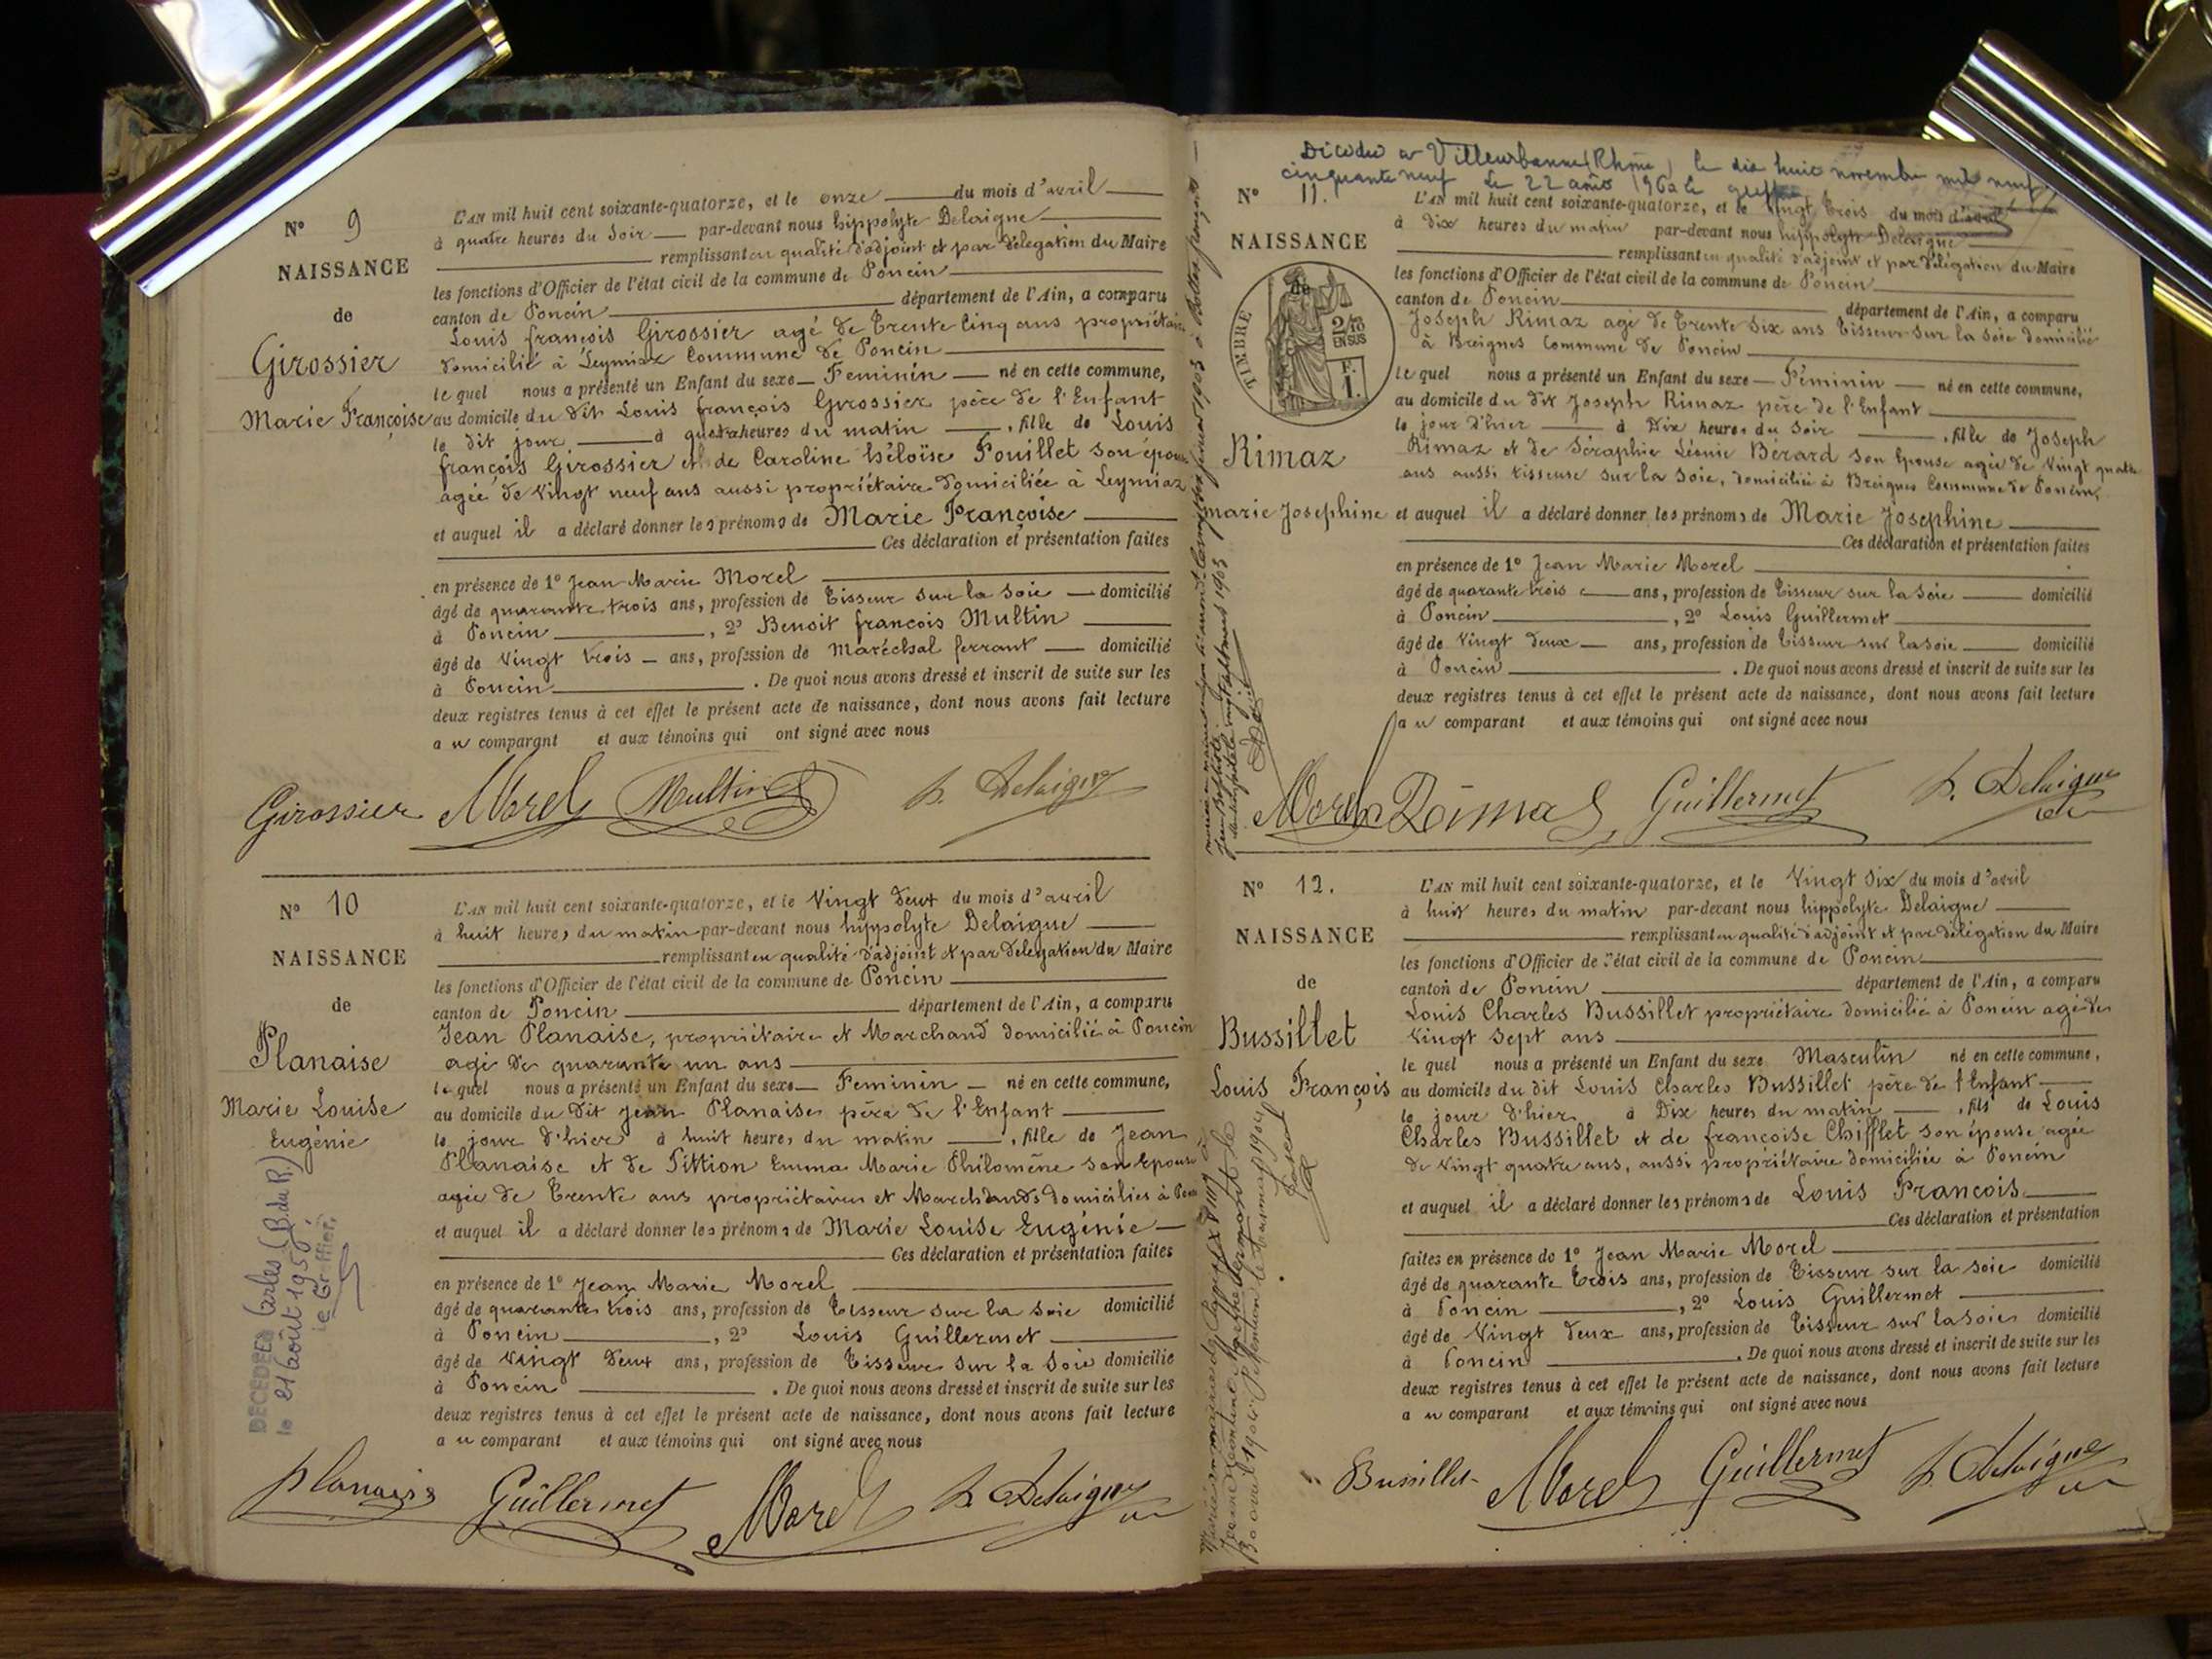 N° 9
NAISSANCE
de
Girossier
Marie Françoise
L'AN mil huit cent soixante-quatorze, et le onze du mois d'avril
à quatre heures du Soir par-devant nous hippolyte Delaigue
remplissant en qualité d'adjoint et par délégation du Maire
les fonctions d'Officier de l'état civil de la commune de Poncin
canton de Poncin département de l'Ain, a comparu
Louis françois Girossier agé de Trente Cinq ans propriétaire
domicilié à Leymiaz Commune de Poncin
le quel nous a présenté un Enfant du sexe Feminin né en cette commune,
au domicile du dit Louis françois Girossier père de l'Enfant
le dit jour à quatre heures du matin , fille de Louis
françois Girossier et de Caroline héloïse Pouillet son épouse
agée de vingt neuf ans aussi propriétaire domiciliée à Leymiaz
et auquel il a déclaré donner les prénoms de Marie Françoise
Ces déclaration et présentation faites
en présence de 1° Jean Marie Morel
âgé de quarante trois ans, profession de Tisseur sur la Soie domicilié
à Poncin , 2° Benoit francois Multin
âgé de Vingt trois ans, profession de Maréchal ferrant domicilié
à Poncin . De quoi nous avons dressé et inscrit de suite sur les
deux registres tenus à cet effet le présent acte de naissance, dont nous avons fait lecture
au comparant et aux témoins qui ont signé avec nous
Girossier Morel Multin h. Delaigue
N° 10
NAISSANCE
de
Planaise
Marie Louise
Eugénie
DECEDEE à Arles (B. du R.)
le 21 Août 195
le Greffier,
L'AN mil huit cent soixante-quatorze, et le Vingt deux du mois d'avril
à huit heures du matin par-devant nous hippolyte Delaigue
remplissant en qualité d'adjoint et par délégation du Maire
les fonctions d'Officier de l'état civil de la commune de Poncin
canton de Poncin département de l'Ain, a comparu
Jean Planaise, propriétaire et Marchand domicilié à Poncin
agé de quarante un ans
le quel nous a présenté un Enfant du sexe Feminin né en cette commune,
au domicile du dit Jean Planaise père de l'Enfant
le jour d'hier à huit heures du matin , fille de Jean
Planaise et de Pittion Emma Marie Philomène son Epouse
agée de Trente ans propriétaires et Marchands domiciliés à Poncin
et auquel il a déclaré donner les prénoms de Marie Louise Eugénie
Ces déclaration et présentation faites
en présence de 1° Jean Marie Morel
âgé de quarante trois ans, profession de Tisseur sur la Soie domicilié
à Poncin , 2° Louis Guillermet
âgé de Vingt deux ans, profession de Tisseur sur la Soie domicilié
à Poncin . De quoi nous avons dressé et inscrit de suite sur les
deux registres tenus à cet effet le présent acte de naissance, dont nous avons fait lecture
au comparant et aux témoins qui ont signé avec nous
Planaise Guillermet Morel h. Delaigue
Décédée à Villeurbanne (Rhône) le dix huit novembre mil neuf
cinquante neuf le 22 1960 le greffier
N° 11.
NAISSANCE
de
TIMBRE
2/10
EN SUS
F.
1.
Rimaz
Marie Josephine
L'AN mil huit cent soixante-quatorze, et le Vingt trois du mois d'avril
à Dix heures du matin par-devant nous hippolyte Delaigue
remplissant en qualité d'adjoint et par délégation du Maire
les fonctions d'Officier de l'état civil de la commune de Poncin
canton de Poncin département de l'Ain, a comparu
Joseph Rimaz agé de Trente Six ans Tisseur sur la Soie domicilié
à Breignes Commune de Poncin
le quel nous a présenté un Enfant du sexe Féminin né en cette commune,
au domicile du dit Joseph Rimaz père de l'Enfant
le jour d'hier à Dix heures du Soir , fille de Joseph
Rimaz et de Séraphie Léonie Bérard son Epouse agée de Vingt quatre
ans aussi tisseuse sur la Soie, domiciliée à Breignes Commune de Poncin,
et auquel il a déclaré donner les prénoms de Marie Josephine
Ces déclaration et présentation faites
en présence de 1° Jean Marie Morel
âgé de quarante trois ans, profession de Tisseur sur la Soie domicilié
à Poncin , 2° Louis Guillermet
âgé de Vingt deux ans, profession de Tisseur sur la Soie domicilié
à Poncin . De quoi nous avons dressé et inscrit de suite sur les
deux registres tenus à cet effet le présent acte de naissance, dont nous avons fait lecture
au comparant et aux témoins qui ont signé avec nous
Morel Rimaz Guillermet h. Delaigue
N° 12.
NAISSANCE
de
Bussillet
Louis François
L'AN mil huit cent soixante-quatorze, et le Vingt Six du mois d'avril
à huit heures du matin par-devant nous hippolyte Delaigue
remplissant en qualité d'adjoint et par délégation du Maire
les fonctions d'Officier de l'état civil de la commune de Poncin
canton de Poncin département de l'Ain, a comparu
Louis Charles Bussillet propriétaire domicilié à Poncin agé de
Vingt Sept ans
le quel nous a présenté un Enfant du sexe Masculin né en cette commune,
au domicile du dit Louis Charles Bussillet père de l'Enfant
le jour d'hier à Dix heures du matin , fils de Louis
Charles Bussillet et de francoise Chifflet son épouse agée
de Vingt quatre ans, aussi propriétaire domiciliée à Poncin
et auquel il a déclaré donner les prénoms de Louis François
Ces déclaration et présentation
faites en présence de 1° Jean Marie Morel
âgé de quarante trois ans, profession de Tisseur sur la Soie domicilié
à Poncin , 2° Louis Guillermet
âgé de Vingt deux ans, profession de Tisseur sur la Soie domicilié
à Poncin . De quoi nous avons dressé et inscrit de suite sur les
deux registres tenus à cet effet le présent acte de naissance, dont nous avons fait lecture
au comparant et aux témoins qui ont signé avec nous
Bussillet Morel Guillermet h. Delaigue